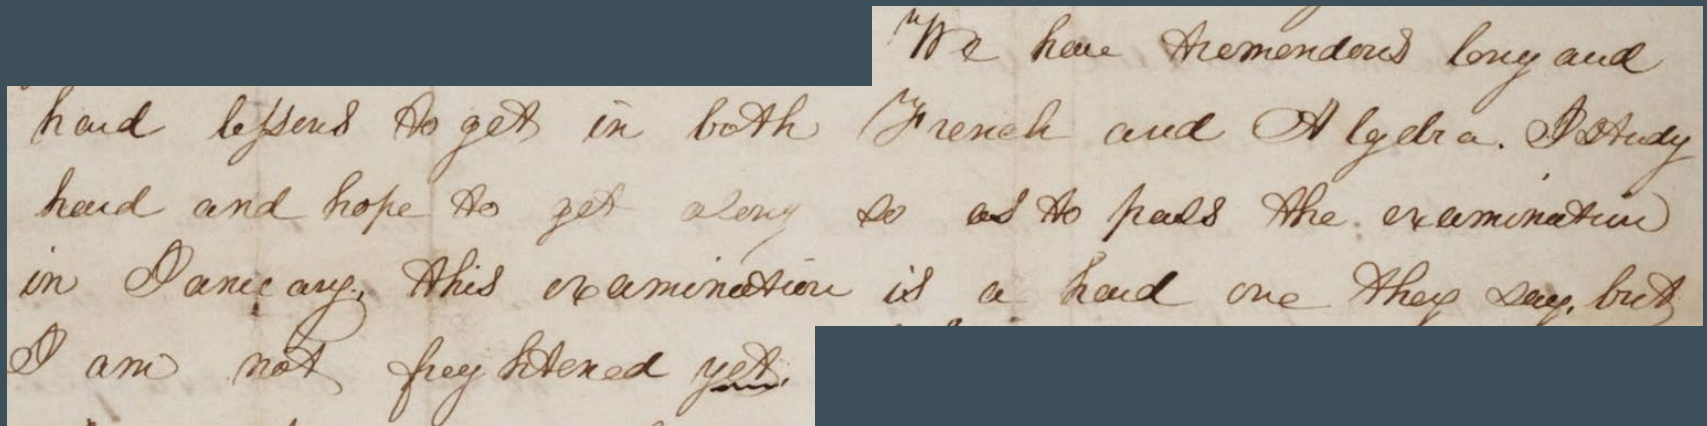 "We have tremendous long and
hard lessons to get in both French and Algebra. I study
hard and hope to get along so as to pass the examination
in January, this examination is a hard one they say, but
I am not freghtened yet.